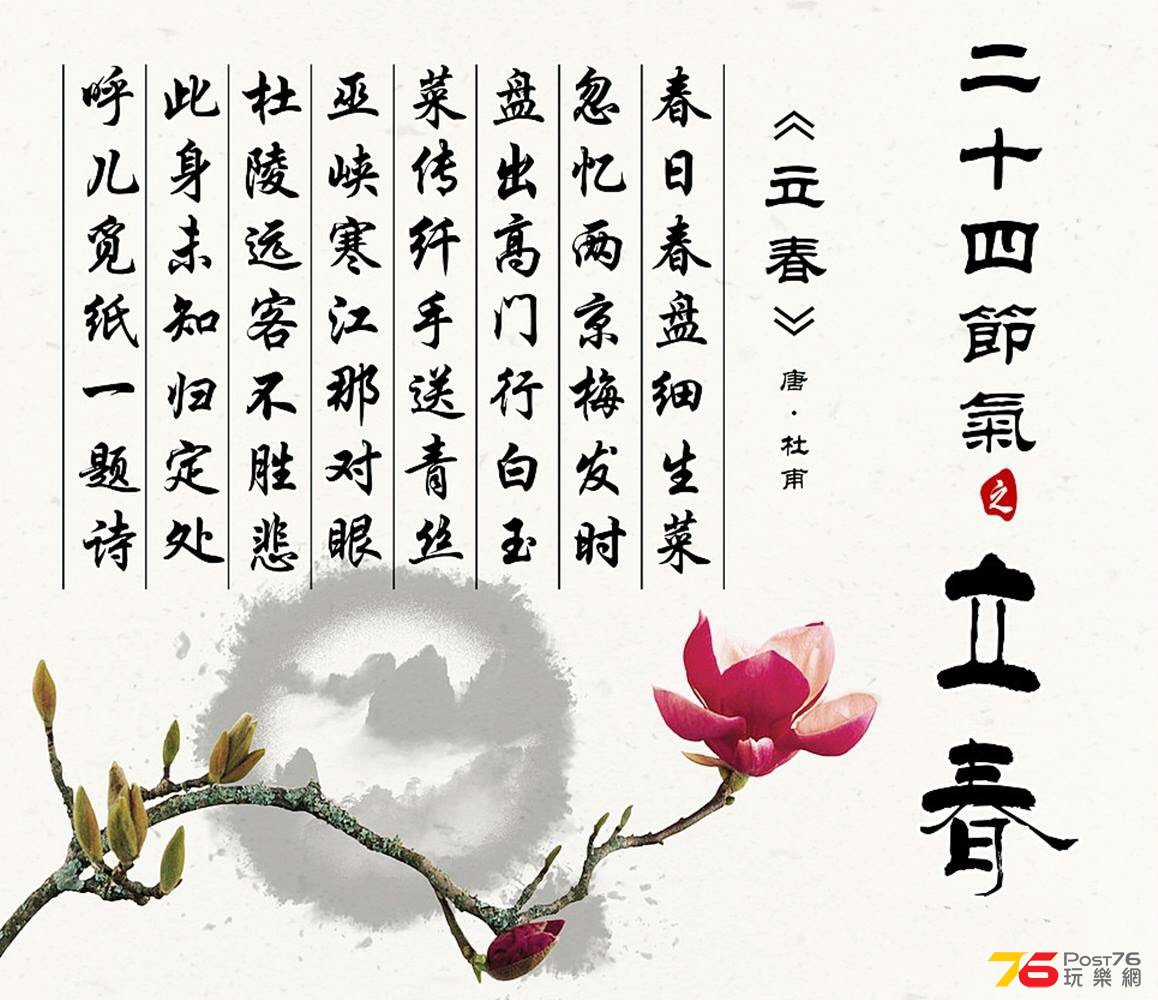 二十四節氣之立春
《立春》
唐·杜甫
春日春盘细生菜
忽忆两京梅发时
盘出高门行白玉
菜传纤手送青丝
巫峡寒江那对眼
杜陵远客不胜悲
此身未知归定处
呼儿觅纸一题诗
76 POST76
玩樂網